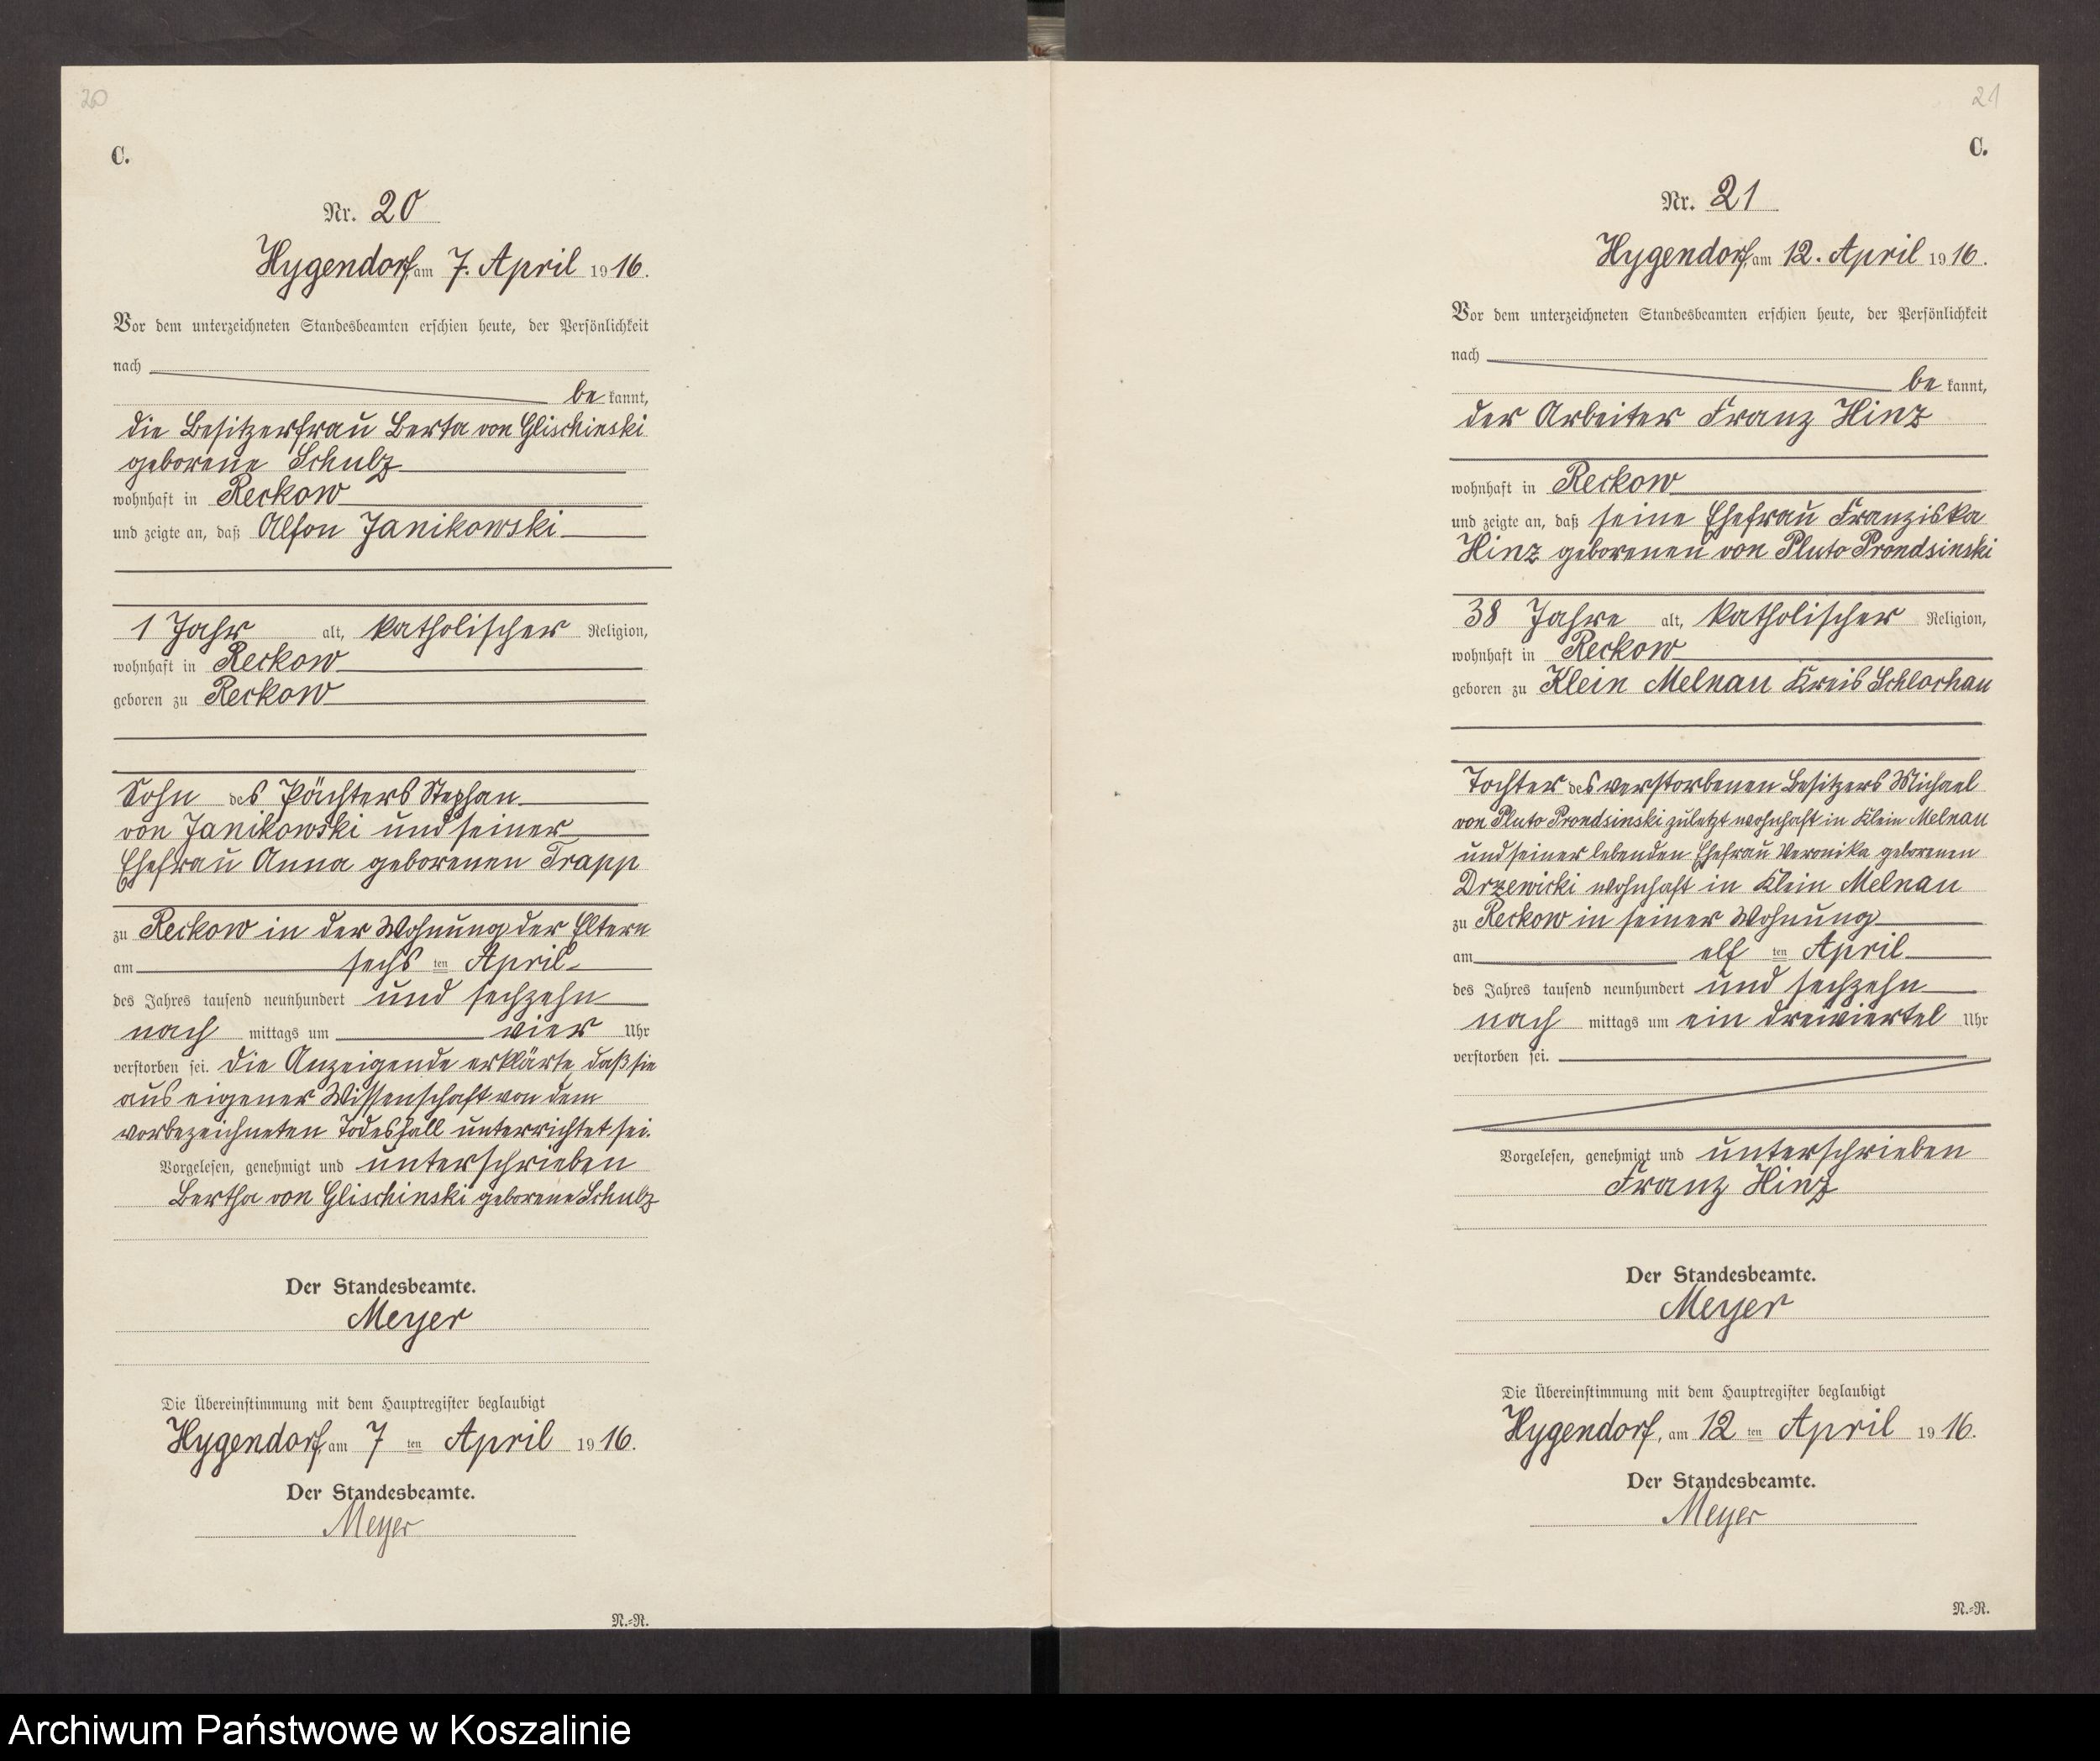 20
C.
Nr. 20
Hygendorf, am 7. April 1916.
Vor dem unterzeichneten Standesbeamten erschien heute, der Persönlichkeit
nach
be kannt,
die Besitzerfrau Berta von Glischinski
geborene Schulz
wohnhaft in Reckow
und zeigte an, daß Alfon Janikowski
1 Jahr alt, katholischer Religion,
wohnhaft in Reckow
geboren zu Reckow
Sohn des Pächters Stephan
von Janikowski und seiner
Ehefrau Anna geborenen Trapp
zu Reckow in der Wohnung der Eltern
am sechs ten April
des Jahres tausend neunhundert und sechzehn
nach mittags um vier Uhr
verstorben sei. Die Anzeigende erklärte, daß sie
aus eigener Wissenschaft von dem
vorbezeichneten Todesfall unterrichtet sei.
Vorgelesen, genehmigt und unterschrieben
Bertha von Glischinski geborene Schulz
Der Standesbeamte.
Meyer
Die Übereinstimmung mit dem Hauptregister beglaubigt
Hygendorf, am 7 ten April 1916.
Der Standesbeamte.
Meyer
N.=R.
21
C.
Nr. 21
Hygendorf, am 12. April 1916.
Vor dem unterzeichneten Standesbeamten erschien heute, der Persönlichkeit
nach
be kannt,
der Arbeiter Franz Hinz
wohnhaft in Reckow
und zeigte an, daß seine Ehefrau Franziska
Hinz geborenen von Pluto Prondsinski
38 Jahre alt, katholischer Religion,
wohnhaft in Reckow
geboren zu Klein Melnau Kreis Schlochau
Tochter des verstorbenen Besitzers Michael
von Pluto Prondsinski zuletzt wohnhaft in Klein Melnau
und seiner lebenden Ehefrau Veronika geborenen
Drzewicki wohnhaft in Klein Melnau
zu Reckow in seiner Wohnung
am elf ten April
des Jahres tausend neunhundert und sechzehn
nach mittags um ein dreiviertel Uhr
verstorben sei.
Vorgelesen, genehmigt und unterschrieben
Franz Hinz
Der Standesbeamte.
Meyer
Die Übereinstimmung mit dem Hauptregister beglaubigt
Hygendorf, am 12 ten April 1916.
Der Standesbeamte.
Meyer
N.=R.
Archiwum Państwowe w Koszalinie